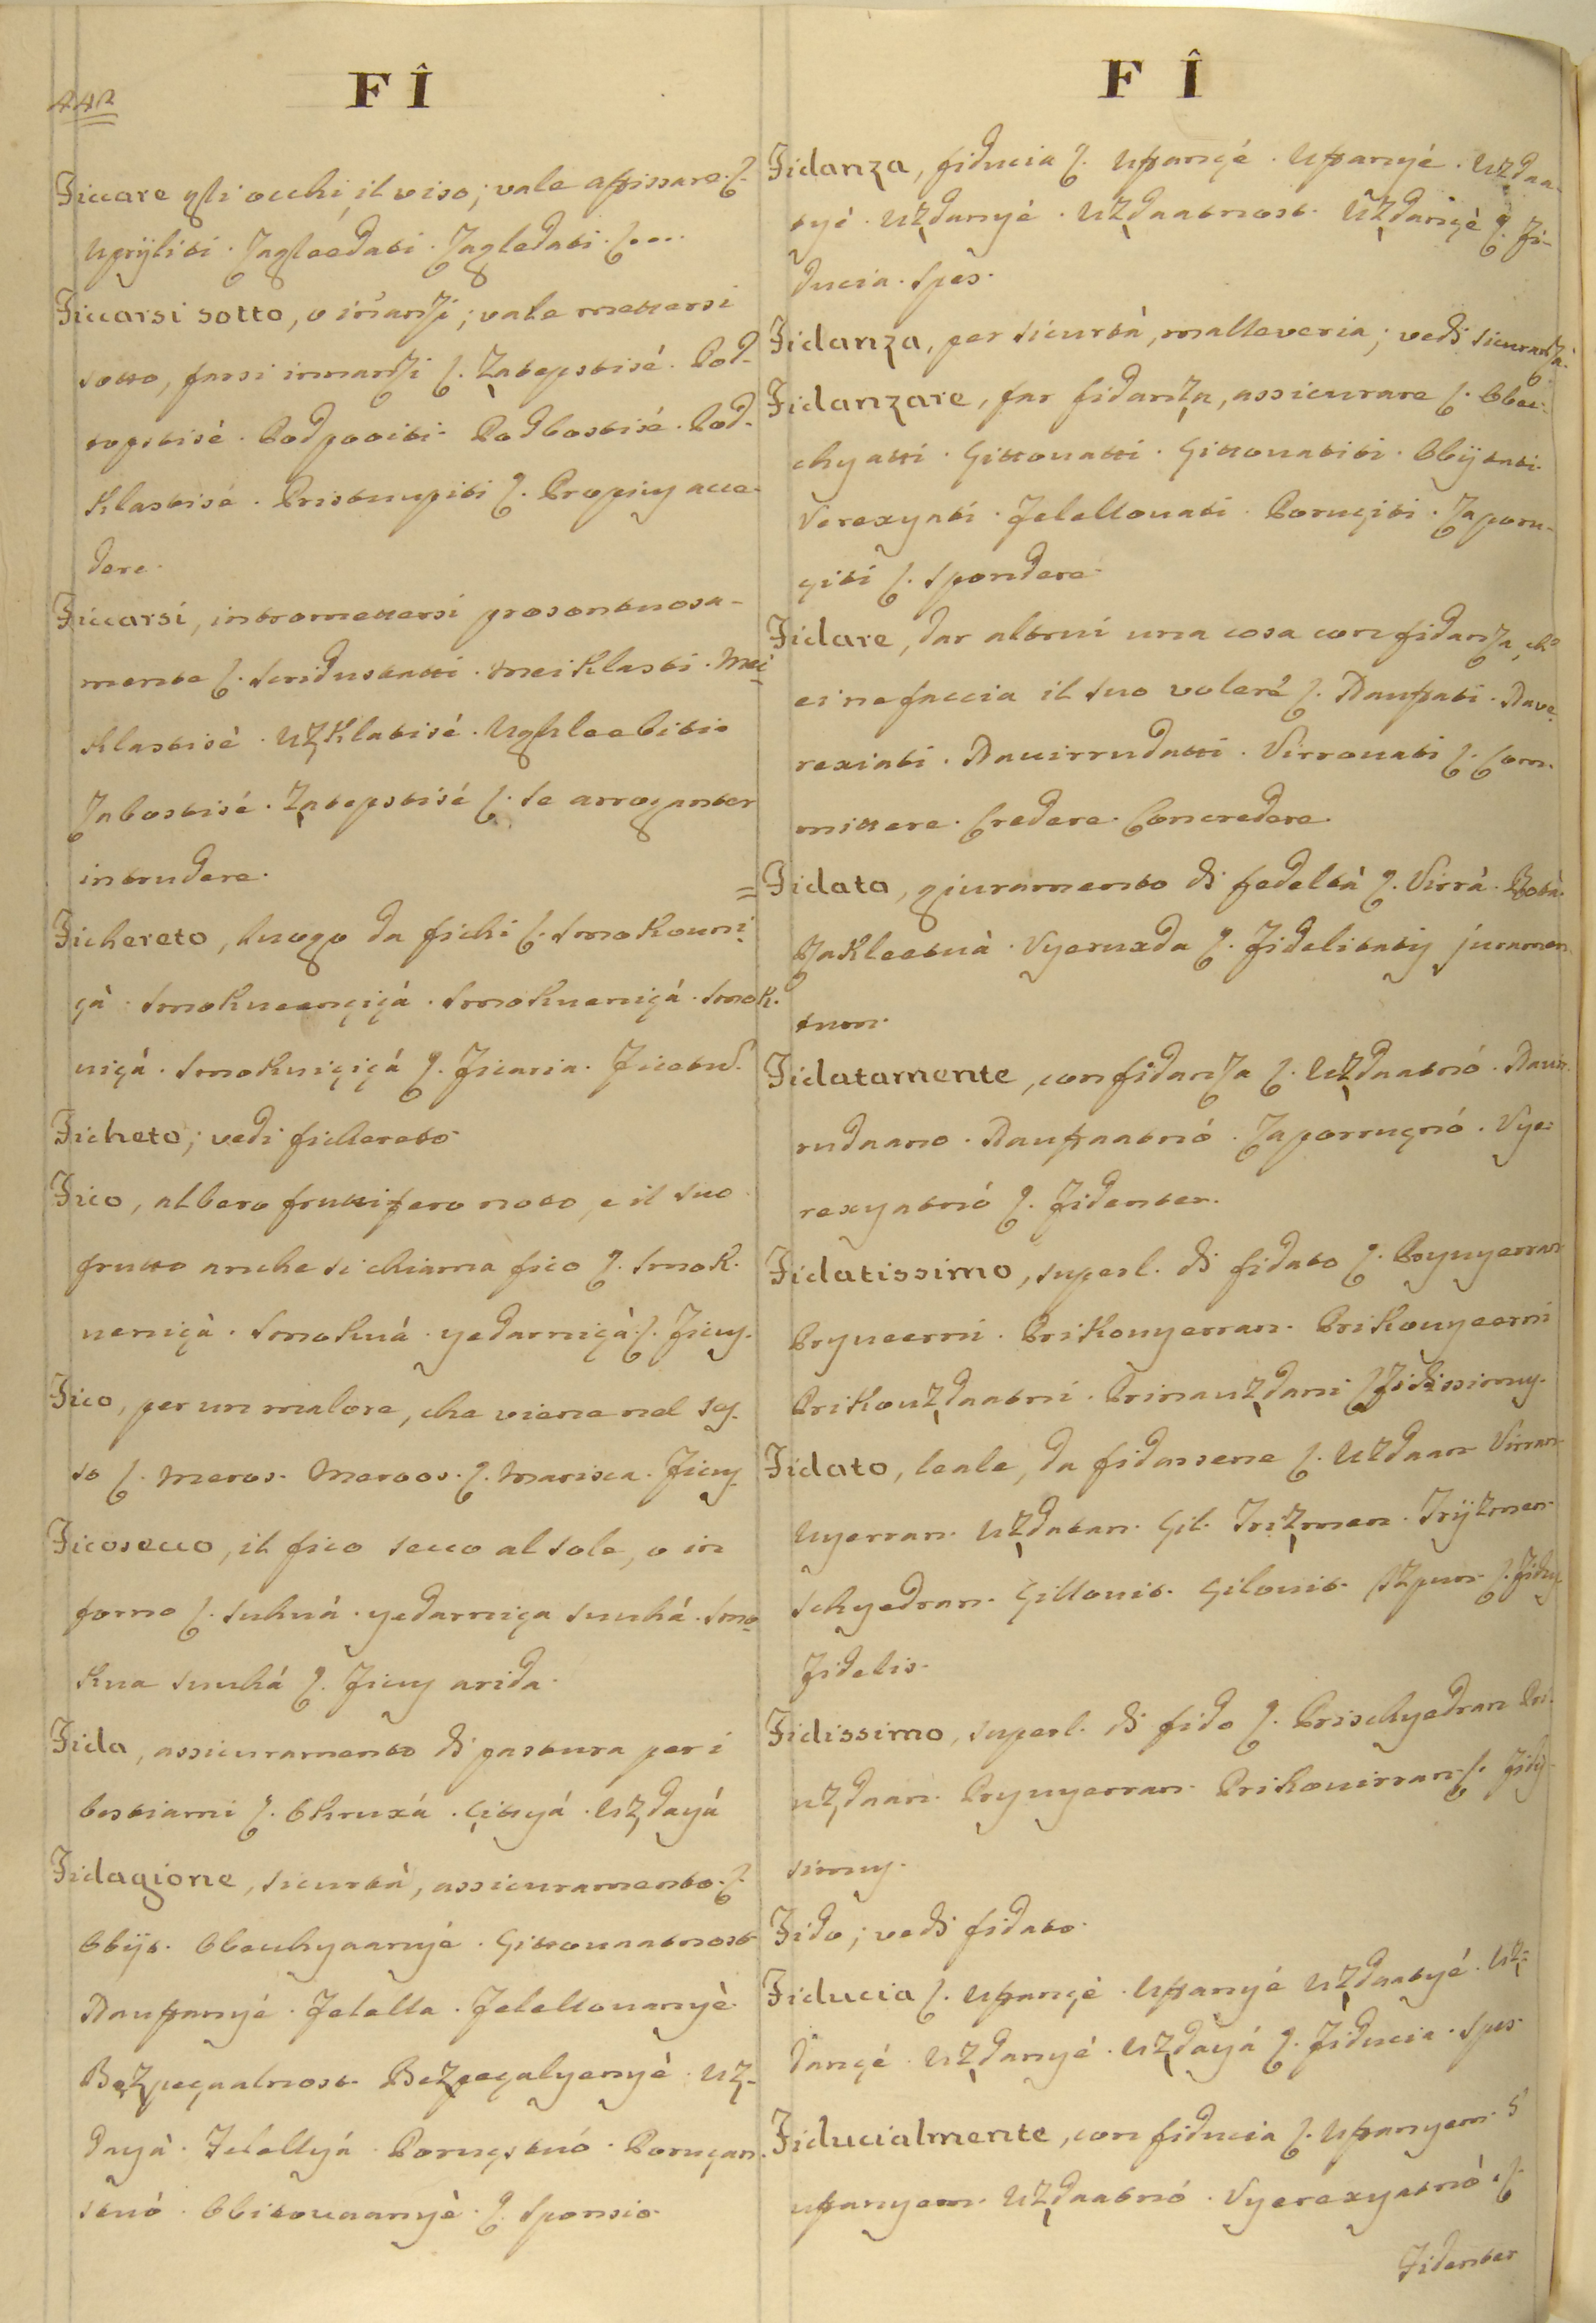 442
F Î
Ficcare gli occhi, il viso; vale affissare. ſ.
Upriÿliti. Zagleedati. Zagledati. ſ....
Ficcarsi sotto, o inanzi; vale mettersi
sotto, farsi innanzi ſ. Zatepstisé. Pod-
topstisé. Podpooiti. Podbostisé. Pod-
klastisé. Pristuupiti ſ. Propiuy acce-
dere.
Ficcarsi, intromettersi prosontuosa-
mente ſ. meiklasti. Mei-
klastisé. Uzklatisé. Ughleebitise
Zabostisé. Zatepstisé ſ. Se arroganter
intrudere.
Fichereto, luogo da fichi ſ. Smokouni-
çà. Smokueençiçá. Smokueniçá. Smok-
uiçá. Smokuiçiçá ſ. Ficaria. Ficetu.
Ficheto; vedi fichereto.
Fico, albero fruttifero noto, e il suo
frutto anche si chiama fico ſ. Smok-
ueniçà. Smokuá. yedarniçà ſ. Ficuy.
Fico, per un malore, che viene nel sey-
so ſ. Meros. Meroos. ſ. Marisca. Ficuy
Ficosecco, il fico secco al sole, o in
forno ſ. Suhuá. yedarniça suuhá. Smo-
kua suuhá ſ. Ficuy arida.
Fida, assicuramento di pastura per i
bestiami ſ. Okruxá. Çittyá. Uzdayá
Fidagione, sicurtà, assicuramento. ſ.
Obÿt. Obeuchyaanyé. Gittouaatnost
Daufzanyé. Jelella. Jelellouanyè.
Bezpeçaalnost. Bezpeçalyenyè. Uz-
dayà. Jelellyá. Poruçstuó. Poruçan-
stuó. Obitouaanyè. ſ. Sponsio.
F Î
Fidanza, fiducia ſ. Ufzançé. Ufzanyé. Uzdaa-
tyé. Uzdanyé. Uzdaatnost. Uzdançè ſ. Fi-
ducia. Spes.
Fidanza, per sicurtà, malleveria; vedi sicuranza.
Fidanzare, far fidanza, assicurare ſ. Obeu-
chyatti. Gittouatti. Gittouatiti. Obÿtati.
Verexyati. Jelellouati. Poruçiti. Zaporu-
çiti ſ. Spondere.
Fidare, dar altrui una cosa con fidanza, che
ei ne faccia il suo volere ſ. Daufzati. Dave-
rexiati. Dauirrudatti. Virrouati ſ. Com-
mittere. Credere. Concredere.
= Fidata, giuramento di fedeltà ſ. Virrà. Rotà.
Zakleetuà. Vyeruxda ſ. Fidelitatiy juramen-
tum.
Fidatamente, con fidanza ſ. Uzdaatnó. Dauir-
rudaano. Daufzaatnó. Zaporruçnó. Vye-
rexyatnó ſ. Fidenter.
Fidatissimo, superl. di fidato ſ. Pryuyerran
Pryueerni. Prikouyerran. Prikouyeerni
Prikouzdaatni. Prinauzdani ſ. Fidissimuy.
Fidato, leale, da fidarsene ſ. Uzdaan Virran
Uyerran. Uzdatan. Gil. Trizmen. Trÿzmen
Schyedran. Gillouit. Gilouit. ſ. Fiduy.
Fidelis.
Fidissimo, superl. di fido ſ. Prischyedran Pri-
uzdaan. Pryuyerran. Prikouirran ſ. Fidiy-
simuy.
Fido; vedi fidato.
Fiducia ſ. Ufzançé. Ufzanyé Uzdaatyé. Uz-
dançé. Uzdanyé. Uzdayá ſ. Fiducia. Spes.
Fiducialmente, con fiducia ſ. Ufzanyem. S'
ufzanyem. Uzdaatnó. Vyerexyatnó. ſ.
Fidenter